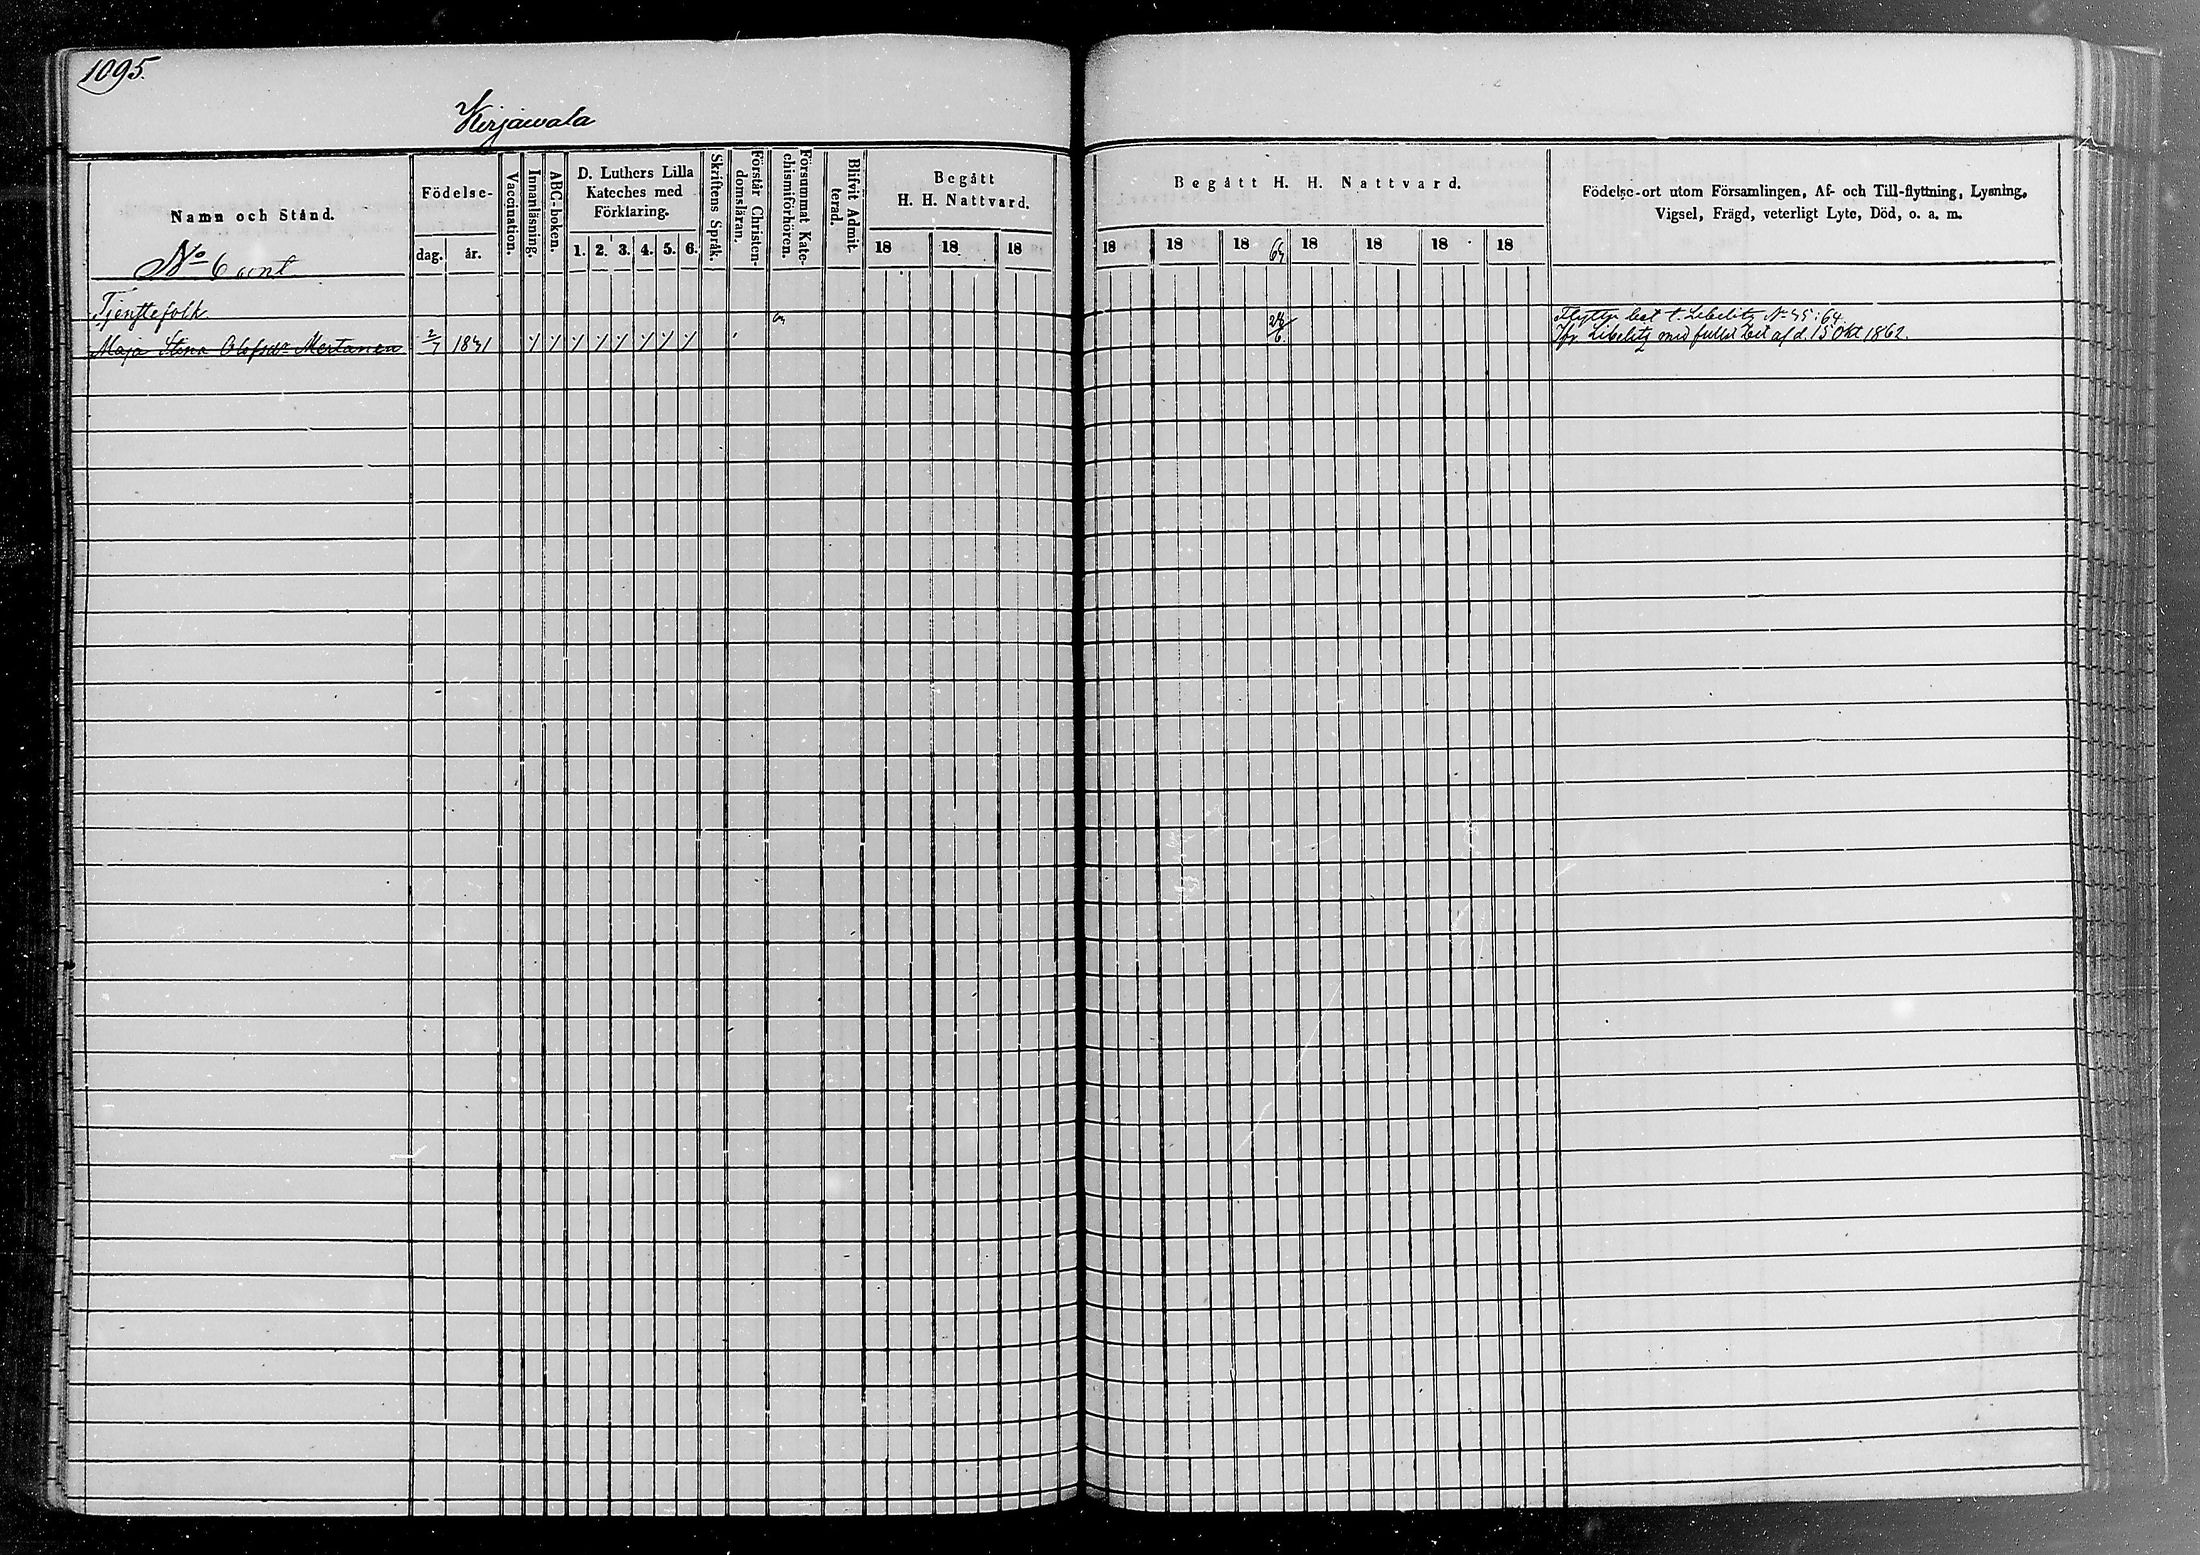 1095.
Kirjawala
Namn och Stånd.
Födelse-
dag.
år.
Vaccination.
Innanläsning.
ABC-boken.
D. Luthers Lilla
Kateches med
Förklaring.
1. 2. 3. 4. 5. 6.
Skriftens Språk.
Förstår Christen-
domsläran.
Försummat Kate-
chismiförhören.
Blifvit Admit-
terad.
Begått
H. H. Nattvard.
18 18 18
Begått H. H. Nattvard.
18 18 18 64 18 18 18 18
Födelse-ort utom Församlingen, Af- och Till-flyttning, Lysning,
Vigsel, Frägd, veterligt Lyte, Död, o. a. m.
No 6 cont.
Tjenstefolk
Maja Stina Olofsdr Mertanen 2/7 1841
Libelitz No 45:64.
Libelitz med af d. 15 Okt 1862.